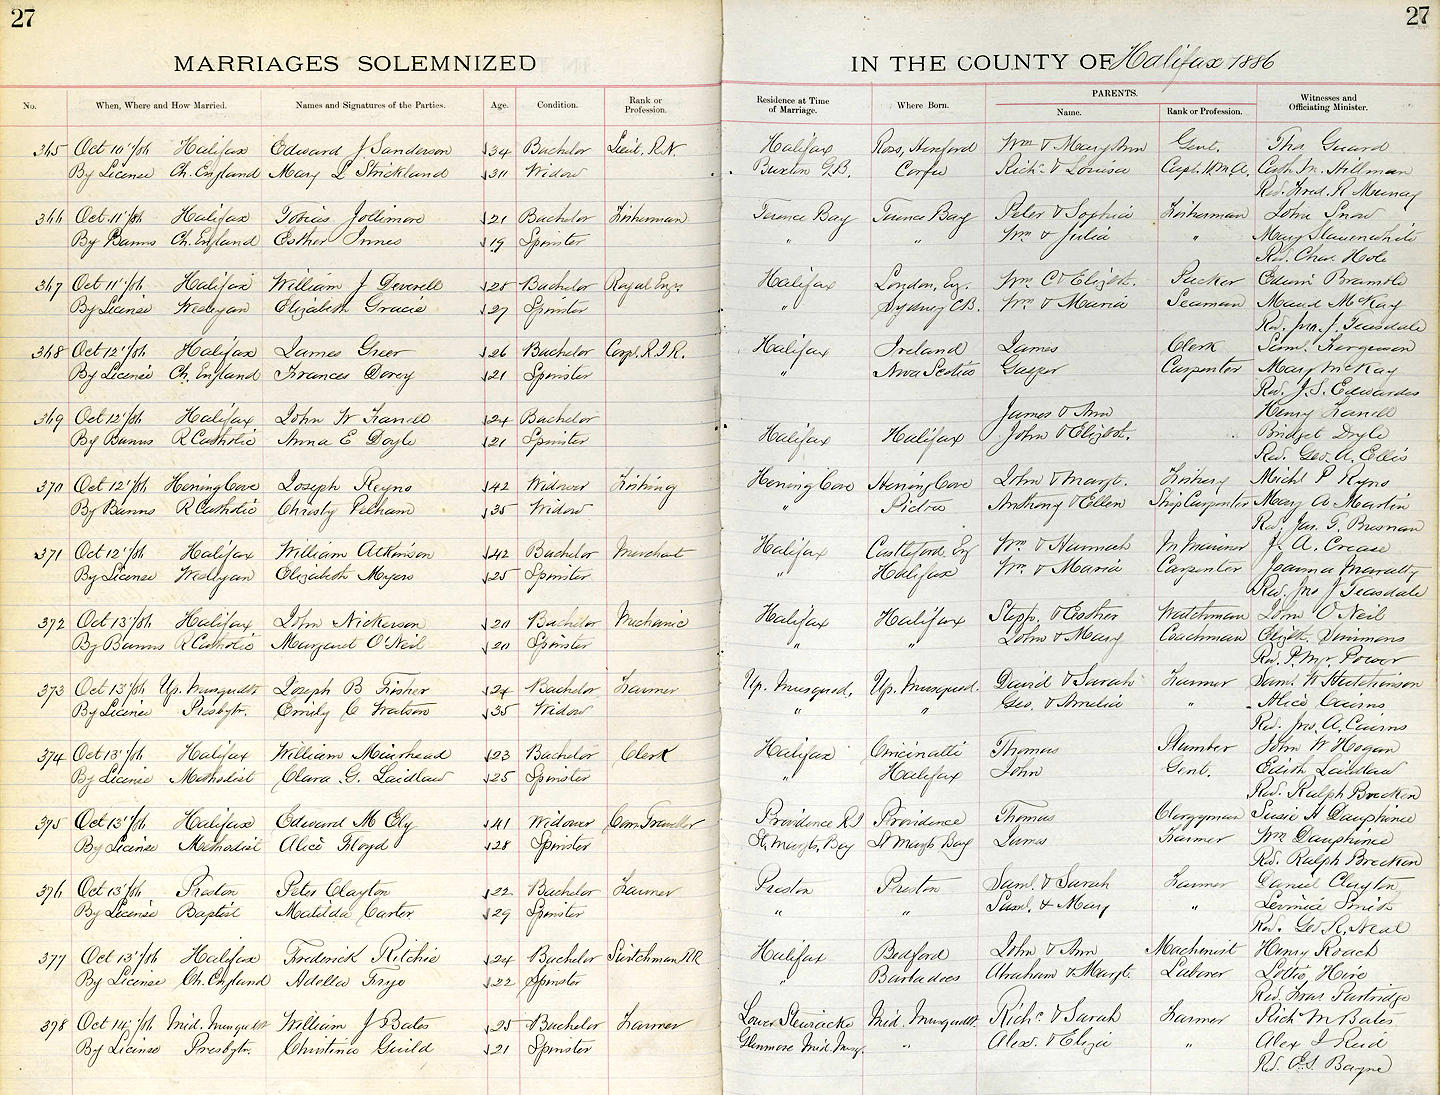 27
27
MARRIAGES SOLEMNIZED IN THE COUNTY OF Halifax 1886
No. When, Where and How Married. Names and Signatures of the Parties. Age. Condition. Rank or Profession. Residence at Time of Marriage. Where Born. PARENTS. Name. Rank or Profession. Witnesses and Officiating Minister.
365 Oct 10"/86 Halifax Edward J Sanderson 34 Bachelor Lieut. R.N. Halifax Ross, Hereford Wm & Mary Ann Gent. Thos Guard
By License Ch. England Mary L Strickland 30 Widow Buxton G.B. Corfu Richd & Louisa Capt. Hillman
Rev. Fred. R Murray
366 Oct. 11"/86 Halifax Tobias Jollimore 21 Bachelor Fisherman Terence Bay Terence Bay Peter & Sophia Fisherman John Snow
By Banns Ch. England Esther Innes 19 Spinster " " Wm & Julia " Mary Slaunwhite
Rev. Chas. Hole
367 Oct 11"/86 Halifax William J Deverell 28 Bachelor Royal Engs. Halifax London, Eng. Wm C & Elizbt. Packer Edwin Bramble
By License Wesleyan Elizabeth Gracie 27 Spinster " Sydney C.B. Wm & Maria Seaman Maud McKay
Rev. Jno. J. Teasdale
368 Oct 12"/86 Halifax James Greer 26 Bachelor Corp. R.I.R. Halifax Ireland James Clerk Ferguson
By License Ch. England Frances Dorey 21 Spinster " Nova Scotia Gasper Carpenter Mary McKay
Rev. J.S. Edwardes
369 Oct 12"/86 Halifax John W Farrell 24 Bachelor James & Ann Henry Farrell
By Banns R Catholic Anna E Doyle 21 Spinster Halifax Halifax John & Elizbt. Bridget Doyle
Rev. Geo. A. Ellis
370 Oct 12"/86 Herring Cove Joseph Reyno 42 Widower Fishing Herring Cove Herring Cove John & Margt. Fishery Michl P Ryno
By Banns R Catholic Christy Pelham 35 Widow " Pictou Anthony & Ellen Ship Carpenter Mary A Martin
Rev. Jas. T. Bresnan
371 Oct 12"/86 Halifax William Atkinson 42 Bachelor Merchant Halifax Castleford Eng Wm & Hannah M Mariner J. A. Crease
By License Wesleyan Elizabeth Myers 25 Spinster " Halifax Wm. & Maria Carpenter Joanna
Rev. Jno J Teasdale
372 Oct 13"/86 Halifax John Nickerson 20 Bachelor Mechanic Halifax Halifax Steph. & Esther Watchman John O'Neil
By Banns R Catholic Margaret O'Neil 20 Spinster " " John & Mary Coachman Elizbt. Simmons
Rev. P. Mgr. Power
373 Oct 13"/86 Up. Musquodt Joseph B Fisher 24 Bachelor Farmer Up. Musquod. Up. Musquod. David & Sarah Farmer Saml. W Hutchinson
By License Presbytr. Emily C Watson 35 Widow " " Geo. & Amelia " Alice Cairns
Rev. Jno. A. Cairns
374 Oct 13"/86 Halifax William Muirhead 23 Bachelor Clerk Halifax Cincinatti Thomas Plumber John W Hogan
By License Methodist Clara G. Laidlaw 25 Spinster " Halifax John Gent. Edith Laidlaw
Rev. Ralph Brecken
375 Oct 13"/86 Halifax Edward M Ely 41 Widower Com. Traveller Providence R.I Providence Thomas Clergyman Susie H Dauphinee
By License Methodist Alice Floyd 28 Spinster St. Margts. Bay St Margts Bay James Farmer Wm Dauphinee
Rev. Ralph Brecken
376 Oct 13"/86 Preston Peter Clayton 22 Bachelor Farmer Preston Preston Saml. & Sarah Farmer Daniel Clayton
By License Baptist Matilda Carter 29 Spinster " " Saml. & Mary " Levinia Smith
Rev. Geo R. Neal
377 Oct 13"/86 Halifax Frederick Ritchie 24 Bachelor Switchman RR Halifax Bedford John & Ann Machenist Henry Roach
By License Ch. England Adella Frye 22 Spinster " Barbadoes Abraham & Margt. Laborer Lottie Hire
Rev. Fras Partridge
378 Oct 14"/86 Mid. Musquodt William J Bates 25 Bachelor Farmer Lower Stewiacke Mid. Musquodt. Richd. & Sarah Farmer Richd M Bates
By License Presbytr. Christina Guild 21 Spinster Glenmore Mid. Musq. " Alex. & Eliza " Alex J Reid
Rev. E.S. Bayne